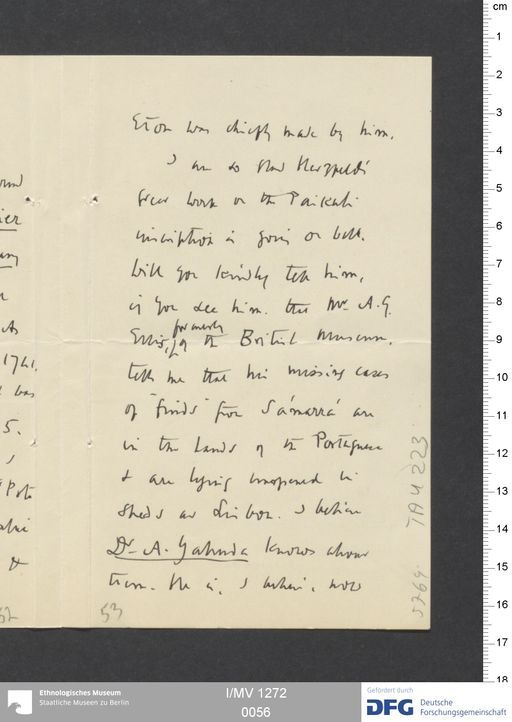 Eton was chiefly made by him.
I am so glad Herzfeld's
great work on the Paikuli
inscription is going on well.
Will you kindly tell him,
if you see him, that Mr. A.G.
Ellis, formerly of the British Museum,
tells me that his missing cases
of "finds" from Sámarrá are
in the hands of the Portuguese
& are lying unopened in
sheds at Lisbon. I believe
Dr. A. Yahuda knows about
them. He is, I believe, now
53
ound
ier
any
As
1741.
was
5.
I
&
52
TAU 223
cm
1
2
3
4
5
6
7
8
9
10
11
12
13
14
15
16
17
18
Ethnologisches Museum
Staatliche Museen zu Berlin
I/MV 1272
0056
Gefördert durch
DFG Deutsche
Forschungsgemeinschaft